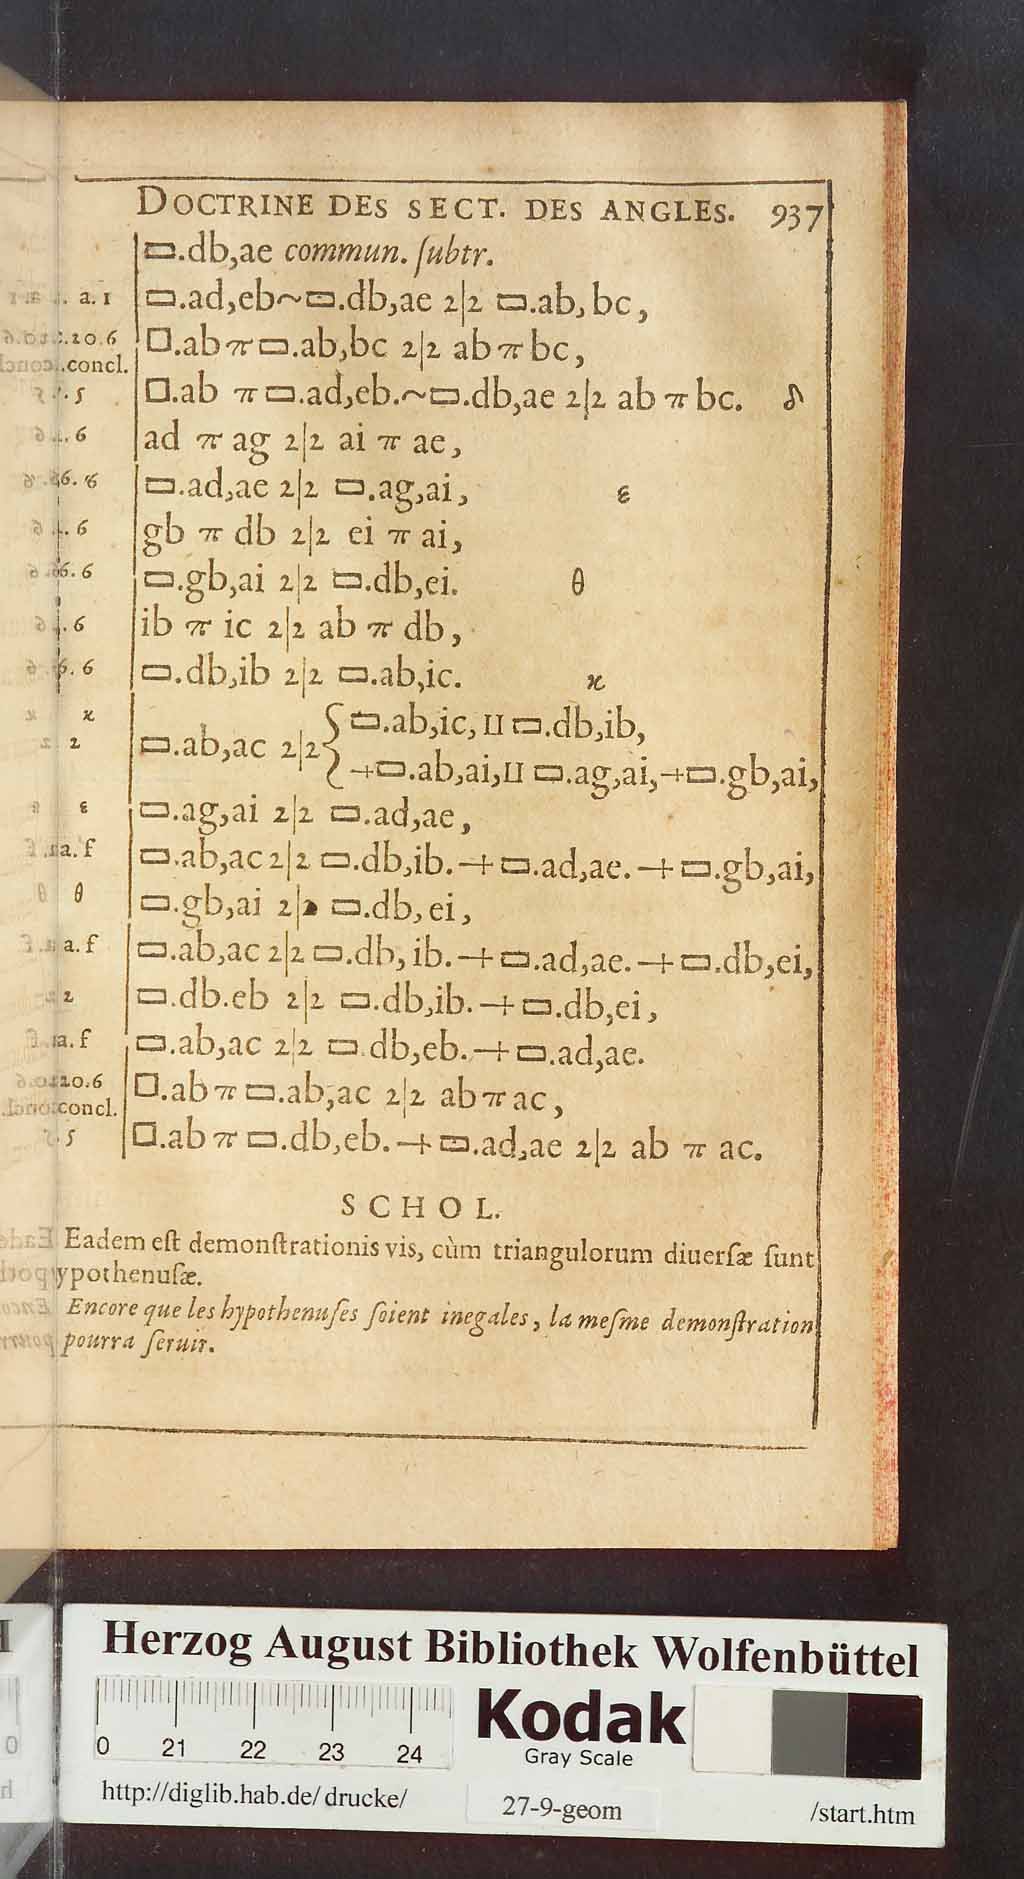 DOCTRINE DES SECT. DES ANGLES. 937
▭.db,ae commun. ſubtr.
a. 1 ▭.ad,eb~▭.db,ae 2|2 ▭.ab,bc,
.20.6 □.ab π ▭.ab,bc 2|2 ab π bc,
concl.
.5 □.ab π ▭.ad,eb.~▭.db,ae 2|2 ab π bc.
. 6 ad π ag 2|2 ai π ae,
6. 6 ▭.ad,ae 2|2 ▭.ag,ai, ε
. 6 gb π db 2|2 ei π ai,
6. 6 ▭.gb,ai 2|2 ▭.db,ei. θ
. 6 ib π ic 2|2 ab π db,
6. 6 ▭.db,ib 2|2 ▭.ab,ic. ϰ
ϰ {▭.ab,ic, II ▭.db,ib,
2 ▭.ab,ac 2|2 {+▭.ab,ai, II ▭.ag,ai,+▭.gb,ai,
ε ▭.ag,ai 2|2 ▭.ad,ae,
a. f ▭.ab,ac 2|2 ▭.db,ib.+▭.ad,ae.+▭.gb,ai,
θ ▭.gb,ai 2|2 ▭.db,ei,
a. f ▭.ab,ac 2|2 ▭.db,ib.+▭.ad,ae.+▭.db,ei,
2 ▭.db.eb 2|2 ▭.db,ib.+▭.db,ei,
a. f ▭.ab,ac 2|2 ▭.db,eb.+▭.ad,ae.
20.6 □.ab π ▭.ab,ac 2|2 ab π ac,
concl.
5 □.ab π ▭.db,eb.+▭.ad,ae 2|2 ab π ac.
SCHOL.
Eadem eſt demonſtrationis vis, cùm triangulorum diuerſæ ſunt
ypothenuſæ.
Encore que les hypothenuſes ſoient inegales, la meſme demonſtration
pourra ſeruir.
Herzog August Bibliothek Wolfenbüttel
0 21 22 23 24
Kodak
Gray Scale
http://diglib.hab.de/drucke/ 27-9-geom /start.htm